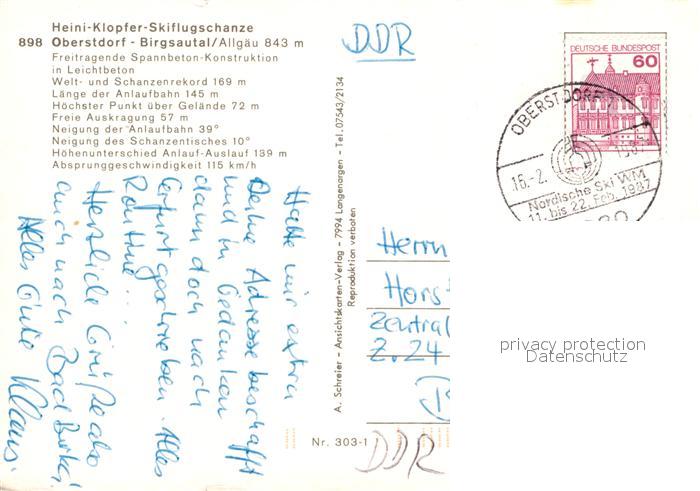 Heini-Klopfer-Skiflugschanze
898 Oberstdorf - Birgsautal/Allgäu 843 m
Freitragende Spannbeton-Konstruktion
in Leichtbeton
Welt- und Schanzenrekord 169 m
Länge der Anlaufbahn 145 m
Höchster Punkt über Gelände 72 m
Freie Auskragung 57 m
Neigung der Anlaufbahn 39°
Neigung des Schanzentisches 10°
Höhenunterschied Anlauf-Auslauf 139 m
Absprunggeschwindigkeit 115 km/h
Hatte mir extra
Deine Adresse beschafft
und in Gedanken
dann doch nach
Erfurt geschrieben. Alles
Routine...
Herzliche Grüße also
auch nach Bad
Alles Gute Klaus.
A. Schreier - Ansichtskarten-Verlag - 7994 Langenargen - Tel. 07543/2134
Reproduktion verboten
Nr. 303-1
DDR
DEUTSCHE BUNDESPOST
60
OBERSTDORF
16.-2.
Nordische Ski WM
11. bis 22. Feb. 1987
Herrn
Hors
Zentral
Z. 24
DDR
privacy protection
Datenschutz